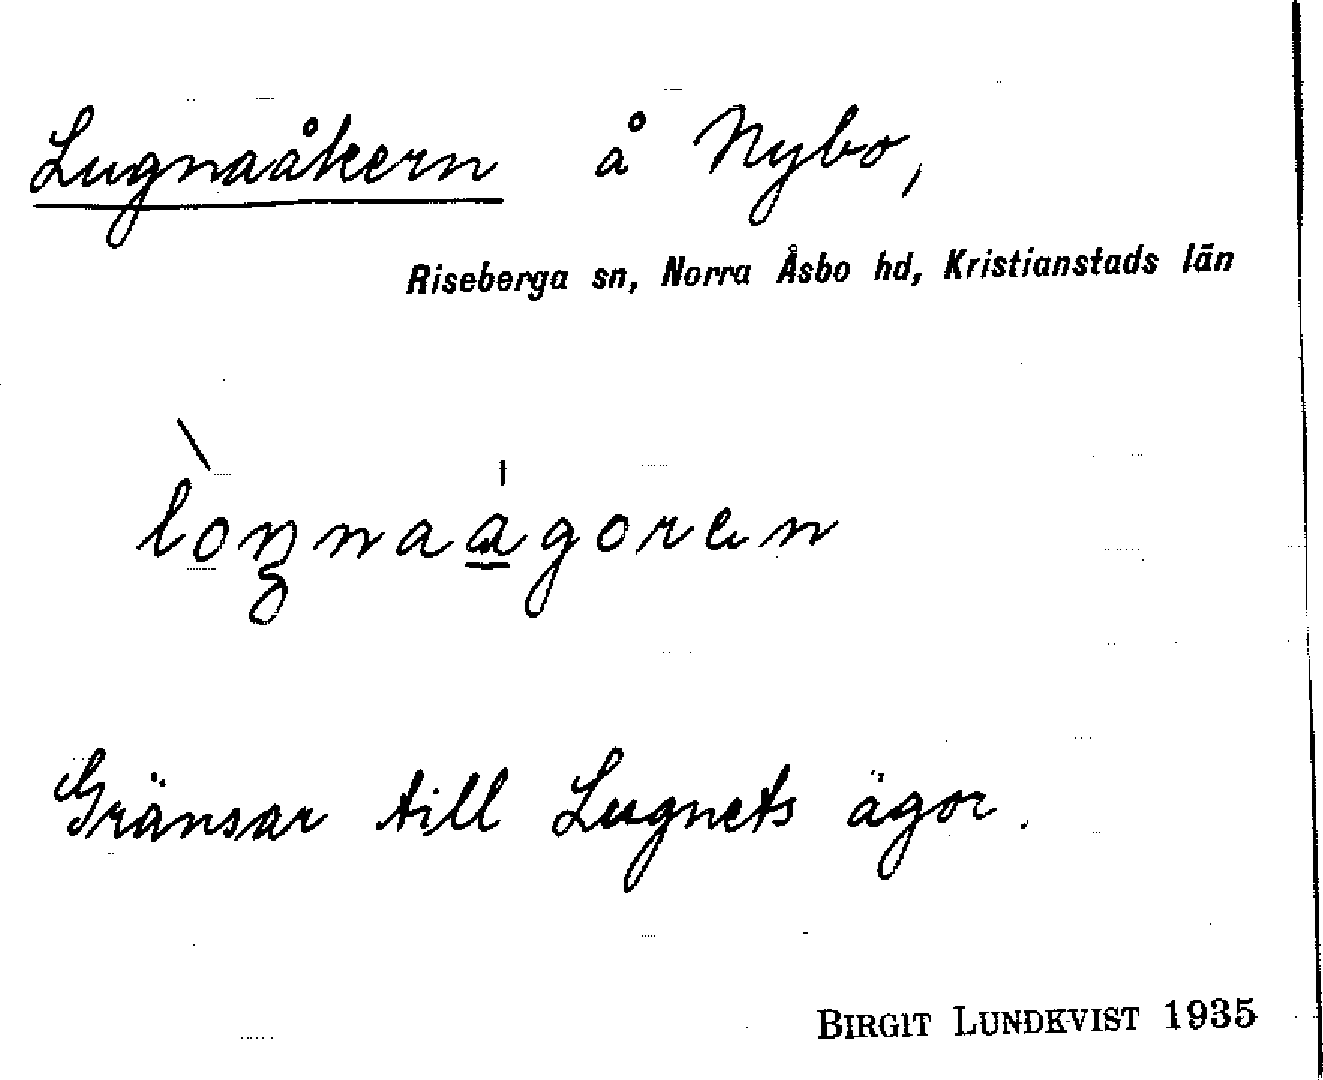 Lugnaåkern å Nybo,
Riseberga sn, Norra Åsbo hd, Kristianstads län
Gränsar till Lugnets ägor.
BIRGIT LUNDKVIST 1935